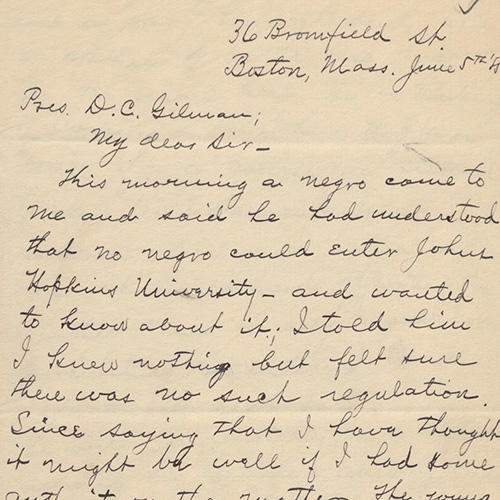 36 Bromfield St.
Boston, Mass. June 5TH '8
Pres. D. C. Gilman;
My dear Sir—
This morning a negro came to
me and said he had understood
that no negro could enter Johns
Hopkins University— and wanted
to know about it; I told him
I knew nothing but felt sure
there was no such regulation.
Since saying that I have thought
it might be well if I had some
on the matter. The young